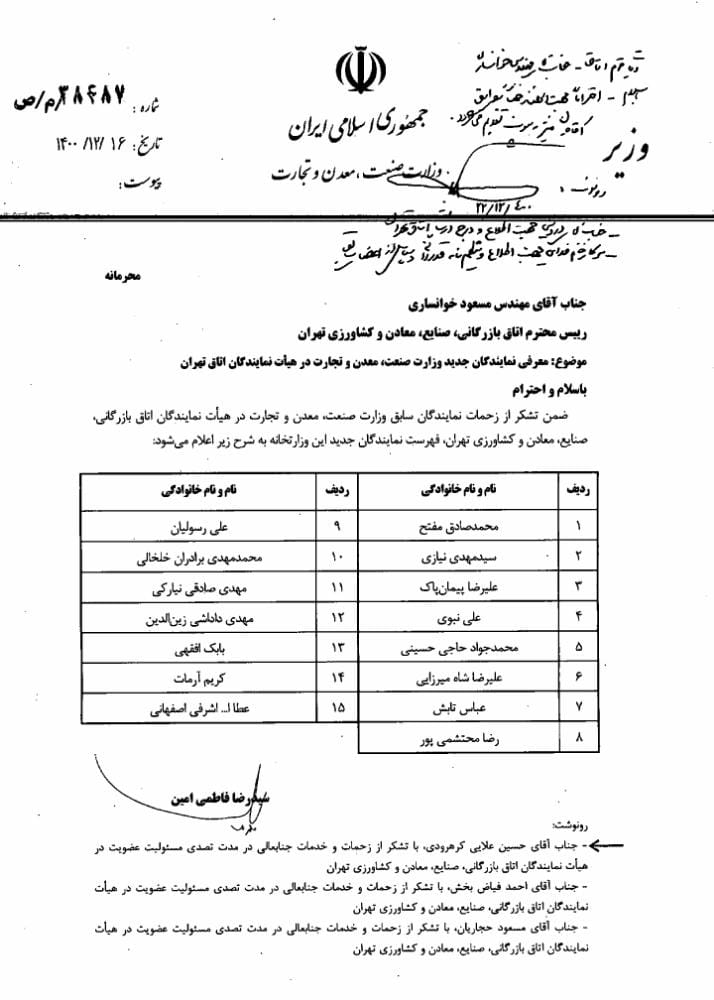 شماره: ۳۸۴۸۷/م/ص
تاریخ: ۱۴۰۰/۱۲/۱۶
پیوست:
جمهوری اسلامی ایران
وزارت صنعت، معدن و تجارت
وزیر
رونوشت:
محرمانه
جناب آقای مهندس مسعود خوانساری
رییس محترم اتاق بازرگانی، صنایع، معادن و کشاورزی تهران
موضوع: معرفی نمایندگان جدید وزارت صنعت، معدن و تجارت در هیأت نمایندگان اتاق تهران
باسلام و احترام
ضمن تشکر از زحمات نمایندگان سابق وزارت صنعت، معدن و تجارت در هیأت نمایندگان اتاق بازرگانی،
صنایع، معادن و کشاورزی تهران، فهرست نمایندگان جدید این وزارتخانه به شرح زیر اعلام می‌شود:
ردیف نام و نام خانوادگی ردیف نام و نام خانوادگی
۱ محمدصادق مفتح ۹ علی رسولیان
۲ سیدمهدی نیازی ۱۰ محمدمهدی برادران خلخالی
۳ علیرضا پیمان‌پاک ۱۱ مهدی صادقی نیارکی
۴ علی نبوی ۱۲ مهدی داداشی زین‌الدین
۵ محمدجواد حاجی حسینی ۱۳ بابک افقهی
۶ علیرضا شاه میرزایی ۱۴ کریم آرمات
۷ عباس تابش ۱۵ عطا ا... اشرفی اصفهانی
۸ رضا محتشمی پور
سیدرضا فاطمی امین
رونوشت:
- جناب آقای حسین علایی کرهرودی، با تشکر از زحمات و خدمات جنابعالی در مدت تصدی مسئولیت عضویت در
هیأت نمایندگان اتاق بازرگانی، صنایع، معادن و کشاورزی تهران
- جناب آقای احمد فیاض بخش، با تشکر از زحمات و خدمات جنابعالی در مدت تصدی مسئولیت عضویت در هیأت
نمایندگان اتاق بازرگانی، صنایع، معادن و کشاورزی تهران
- جناب آقای مسعود حجاریان، با تشکر از زحمات و خدمات جنابعالی در مدت تصدی مسئولیت عضویت در هیأت
نمایندگان اتاق بازرگانی، صنایع، معادن و کشاورزی تهران